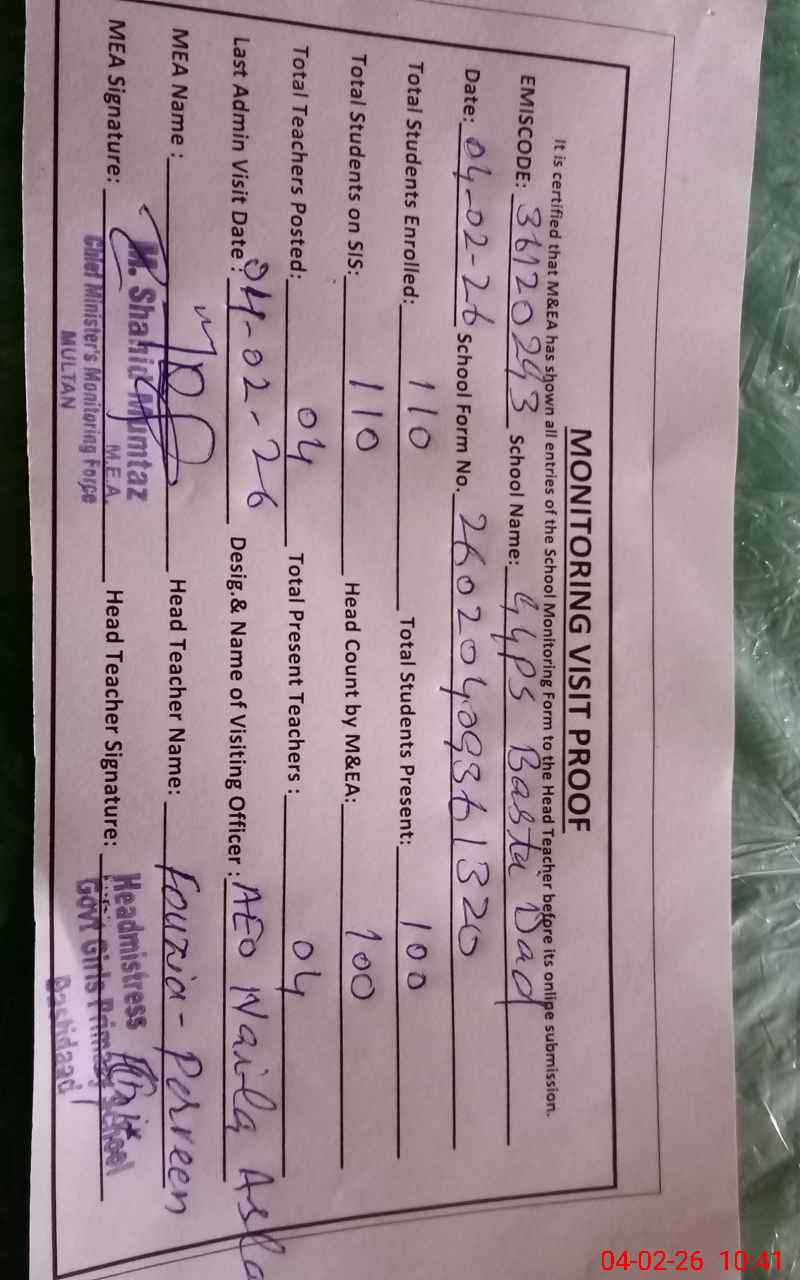 MONITORING VISIT PROOF
It is certified that M&EA has shown all entries of the School Monitoring Form to the Head Teacher before its online submission.
EMISCODE: 36120293 School Name: GGPS Basti Dad
Date: 04-02-26 School Form No. 26020409361320
Total Students Enrolled: 110 Total Students Present: 100
Total Students on SIS: 110 Head Count by M&EA: 100
Total Teachers Posted: 04 Total Present Teachers : 04
Last Admin Visit Date : 04-02-26 Desig.& Name of Visiting Officer : AEO Naila
MEA Name : Head Teacher Name: Fouzia - Perveen
MEA Signature: Head Teacher Signature:
M. Shahid Mumtaz
M.E.A.
Chief Minister's Monitoring Force
MULTAN
Headmistress
Govt Girls Primary School
04-02-26 10:41